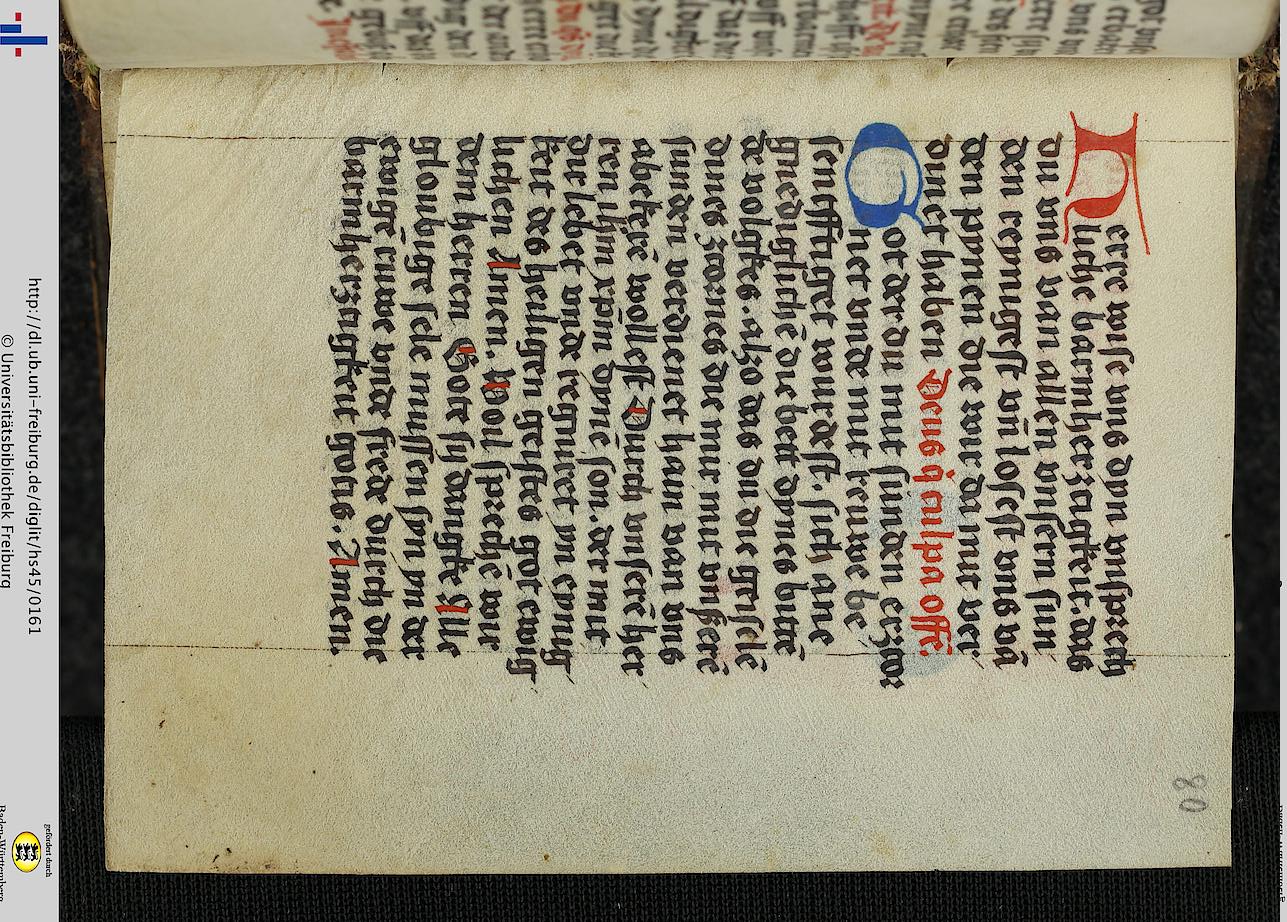 Herre wise vns dyn vnsprech
liche barmherzogkeit. das
du vns van allen vnsern sun
den reynigest vn̄ losest vns vā
den pynen die wir da mit ver
dinet haben Deus q̄ culpa offē.
Got der du mit sunden erzor
net vnde mit ruwe be
senfftiget wurdest. sich ane
gnediglichē die bett dynes bitte
de volgkes. alzo das du die geisle
dines zornes die wir mit vnserē
sunden verdienet haan van vns
abekerē wollest Durch vnserē her
ren ihm xpm dynē son. der mit
dir lebet vnde regniret yn eynig
keit des heiligen geystes got ewig
lichen Amen. Wol sprechē wir
dem herren Gote sy dangke Alle
gloubige sele mussen syn yn der
ewigē ruwe vnde frede durch die
barmherzogkeit gotas. Amen
80
http://dl.ub.uni-freiburg.de/diglit/hs45/0161
© Universitätsbibliothek Freiburg
gefördert durch
Baden-Württemberg